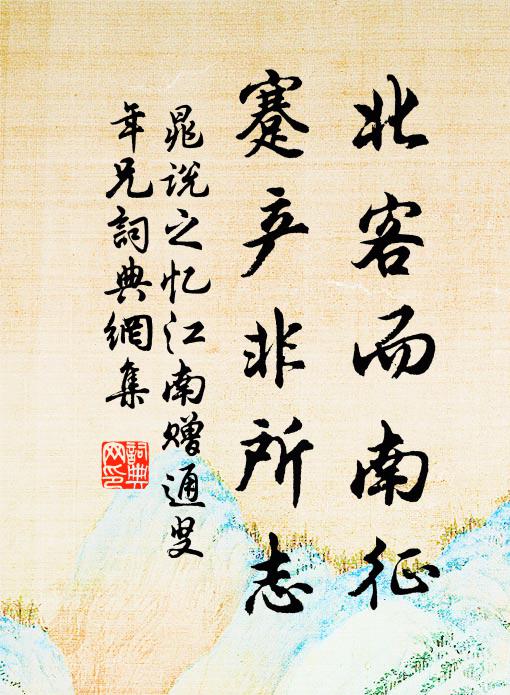 北客而南征
蹇产非所志
晁说之忆江南赠通叟
年兄詞典網集
詞典
网印